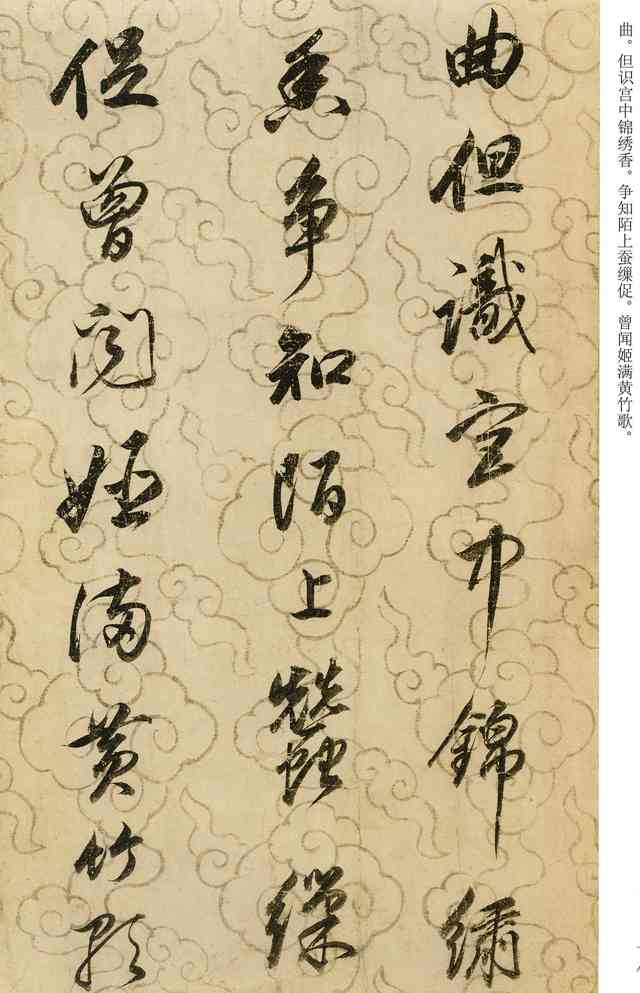 曲。但识宫中锦绣香。争知陌上蚕缫促。曾闻姬满黄竹歌。
曲但識宫中錦繡
香爭知陌上蠶繅
促曾聞姬滿黄竹歌